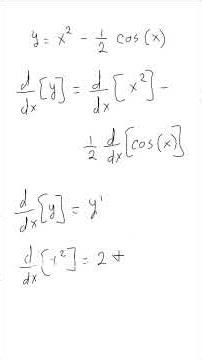 y = x² - 1/2 cos(x)
d/dx [y] = d/dx [x²] -
1/2 d/dx [cos(x)]
d/dx [y] = y'
d/dx [x²] = 2